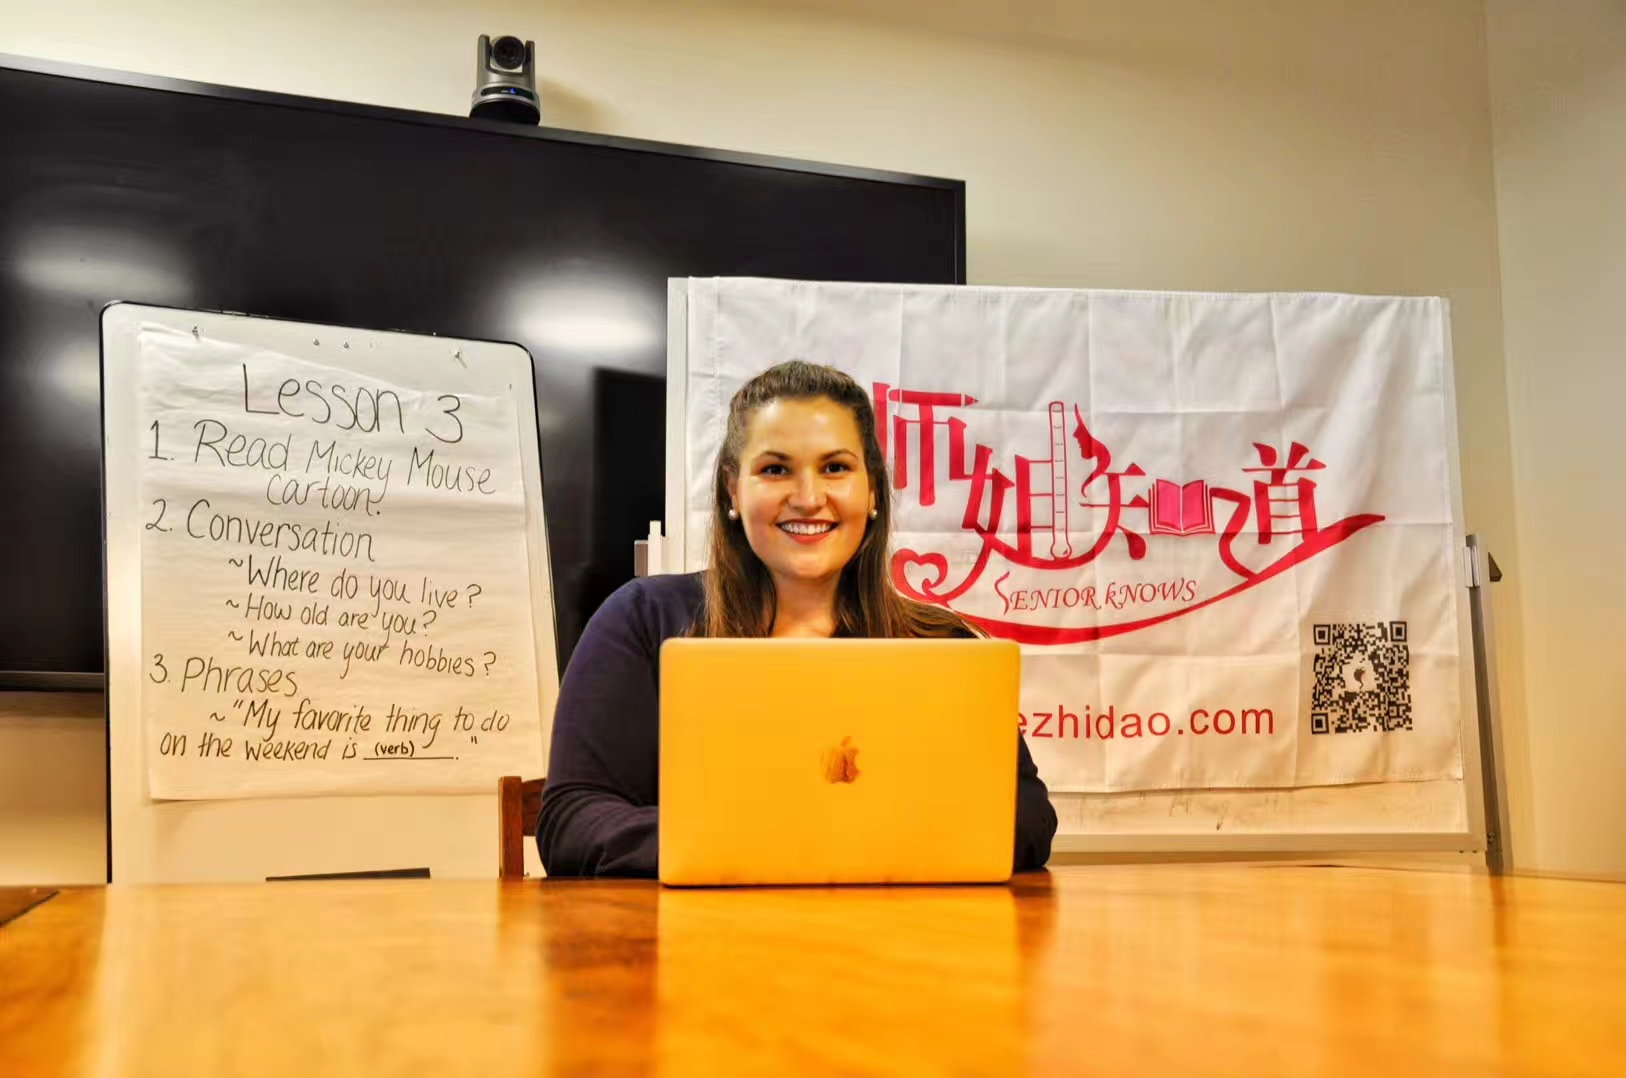 Lesson 3
1. Read Mickey Mouse
cartoon.
2. Conversation
~Where do you live?
~How old are you?
~What are your hobbies?
3. Phrases
~"My favorite thing to do
on the weekend is (verb)______."
师姐知道
SENIOR kNOWS
ezhidao.com